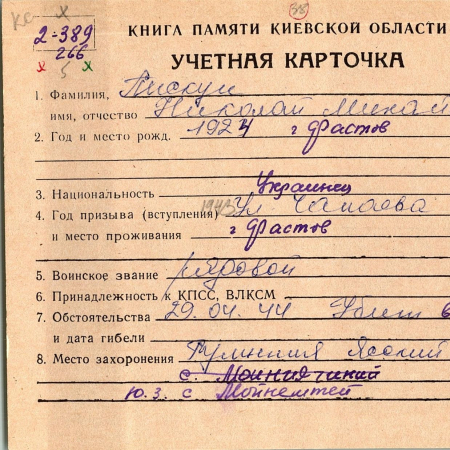 КС х
38
2-389
266
х 5 х
КНИГА ПАМЯТИ КИЕВСКОЙ ОБЛАСТИ
УЧЕТНАЯ КАРТОЧКА
1. Фамилия, Пискун
имя, отчество Николай Михай
2. Год и место рожд. 1924 г Фастов
3. Национальность Украинец
4. Год призыва (вступления) ул Чапаева
и место проживания г Фастов
5. Воинское звание рядовой
6. Принадлежность к КПСС, ВЛКСМ
7. Обстоятельства 29.04.44 Убит
и дата гибели
8. Место захоронения Румыния Ясский
с.
Ю.З. с Мойнештей